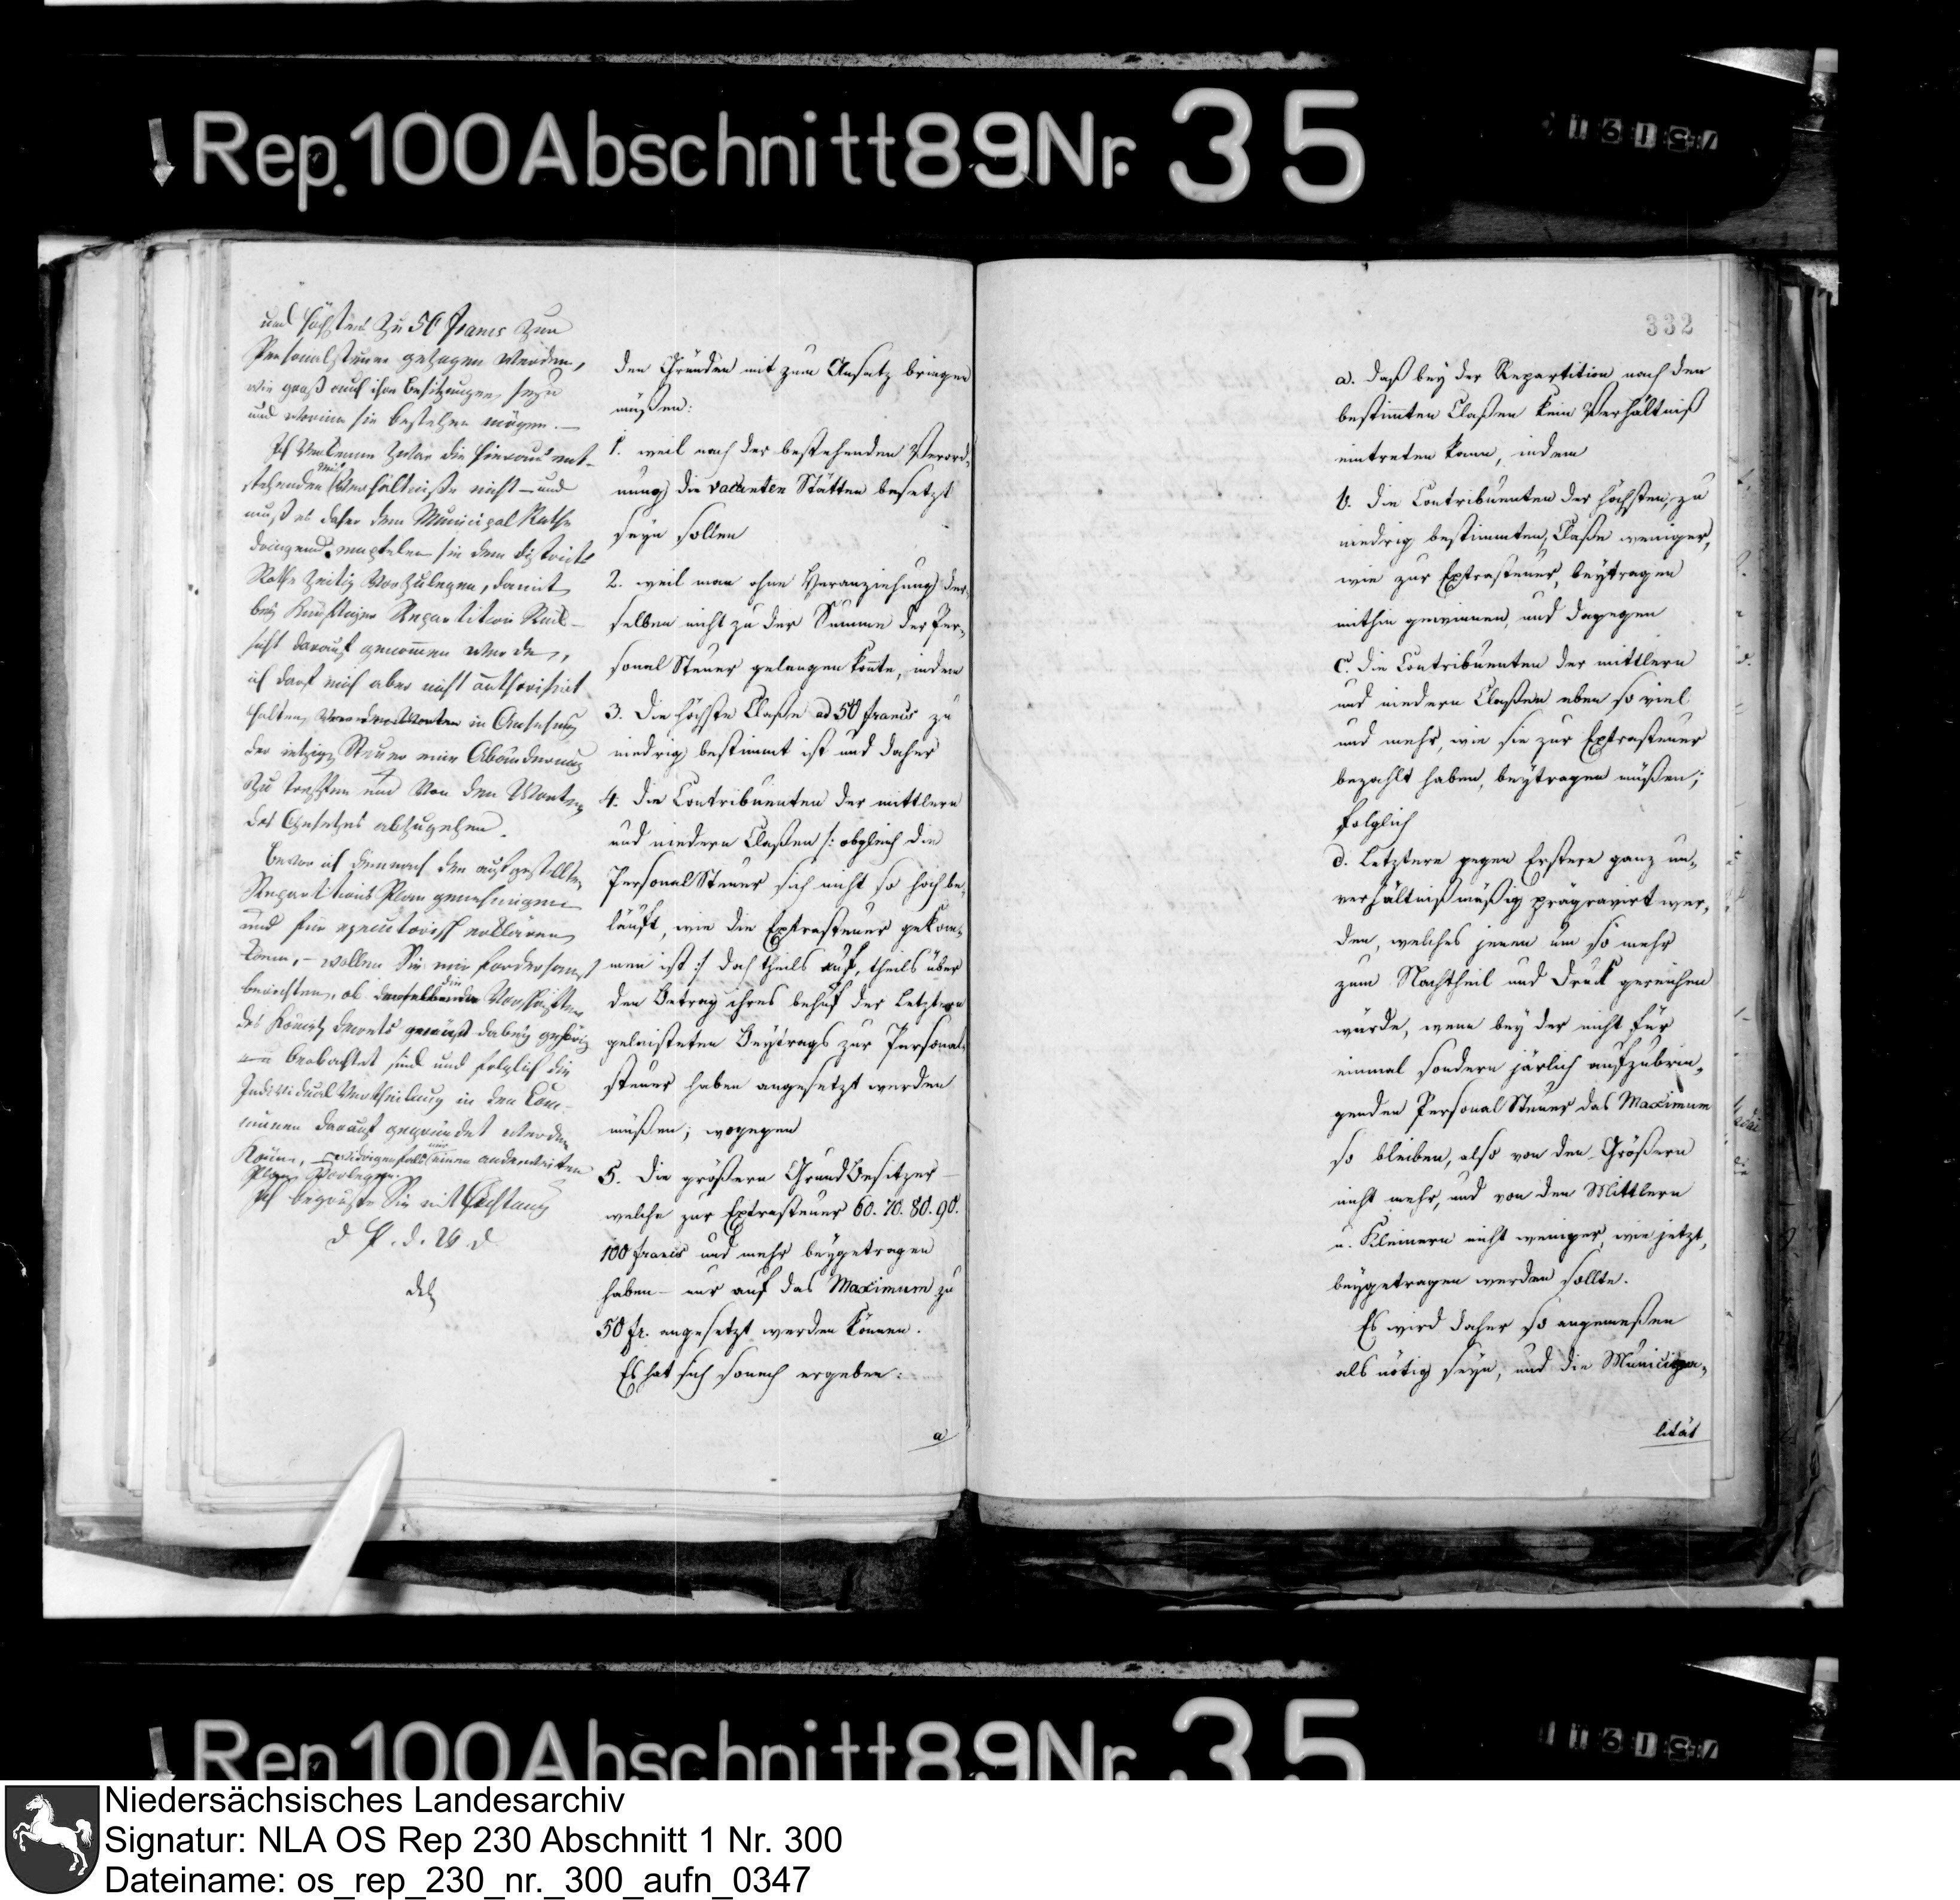 Rep. 100 Abschnitt 89 Nr. 35
und höchstens zu 50 francs zur
Personalsteuer gezogen werden,
wie groß auch ihre Besitzungen seyn
und worin sie bestehen mögen. —
Ich verkenne zwar die hieraus ent-
stehenden Mißverhältniße nicht – und
muß es daher dem Municipal Rathe
dringend empfelen sie dem Districts
Rathe zeitig vorzulegen, damit
bey künftiger Repartition Rück-
sicht darauf genommen werde,
ich darf mich aber nicht authorisirt
halten, in Ansehung
der jetzigen Steuer eine Abänderung
zu treffen und von den Worten
des Gesetzes abzugehen.
Bevor ich demnach den aufgestellten
Repartitions Plan genehmigen
und für executorisch erklären
kann, – wollen Sie mir fordersamst
berichten, ob die Vorschriften
des Königl. Decrets gemäß dabey gehörig
beobachtet sind und folglich die
Individual Vertheilung in den Com-
munen darauf gegründet werden
könne, widrigenfalls mir einen anderweiten
Plan vorlegen.
Ich begrüße Sie mit Achtung
d P. d. W d
den Gründen mit zum Ansatz bringen
müßen:
1. weil nach der bestehenden Verord-
nung die vacanten Stätten besetzt
seyn sollen
2. weil man ohne Heranziehung der-
selben nicht zu der Summe der Per-
sonal Steuer gelangen konnte, indem
3. die höchste Claße ad 50 francs zu
niedrig bestimmt ist und daher
4. die Contribuenten der mittlern
und niedern Claßen /: obgleich die
Personal Steuer sich nicht so hoch be-
läuft, wie die Extrasteuer gekom-
men ist :/ doch theils auf, theils über
den Betrag ihres behuf der Letztern
geleisteten Beytrags zur Personal-
steuer haben angesetzt werden
müßen; wogegen
5. die größern GrundBesitzer –
welche zur Extrasteuer 60. 70. 80. 90.
100 francs und mehr beygetragen
haben – nur auf das Maximum zu
50 fr. angesetzt werden können.
Es hat sich sonach ergeben:
a
332
a. daß bey der Repartition nach den
bestimmten Claßen kein Verhältniß
eintreten kann, indem
b. die Contribuenten der höchsten, zu
niedrig bestimmten, Claße weniger,
wie zur Extrasteuer, beytragen
mithin gewinnen, und dagegen
c. die Contribuenten der mittlern
und niedern Claßen eben so viel
und mehr, wie sie zur Extrasteuer
bezahlt haben, beytragen müßen;
folglich
d. Letztere gegen Erstere ganz un-
verhältnißmäßig prägravirt wer-
den, welches jenen um so mehr
zum Nachtheil und Druck gereichen
würde, wenn bey der nicht für
einmal sondern järlich aufzubrin-
genden Personal Steuer das Maximum
so bleiben, also von den Größern
nicht mehr, und von den Mittlern
u. Kleinern nicht weniger, wie jetzt,
beygetragen werden sollte.
Es wird daher so angemeßen
als nötig seyn, und die Municipa-
lität
Rep. 100 Abschnitt 89 Nr. 35
Niedersächsisches Landesarchiv
Signatur: NLA OS Rep 230 Abschnitt 1 Nr. 300
Dateiname: os_rep_230_nr._300_aufn_0347